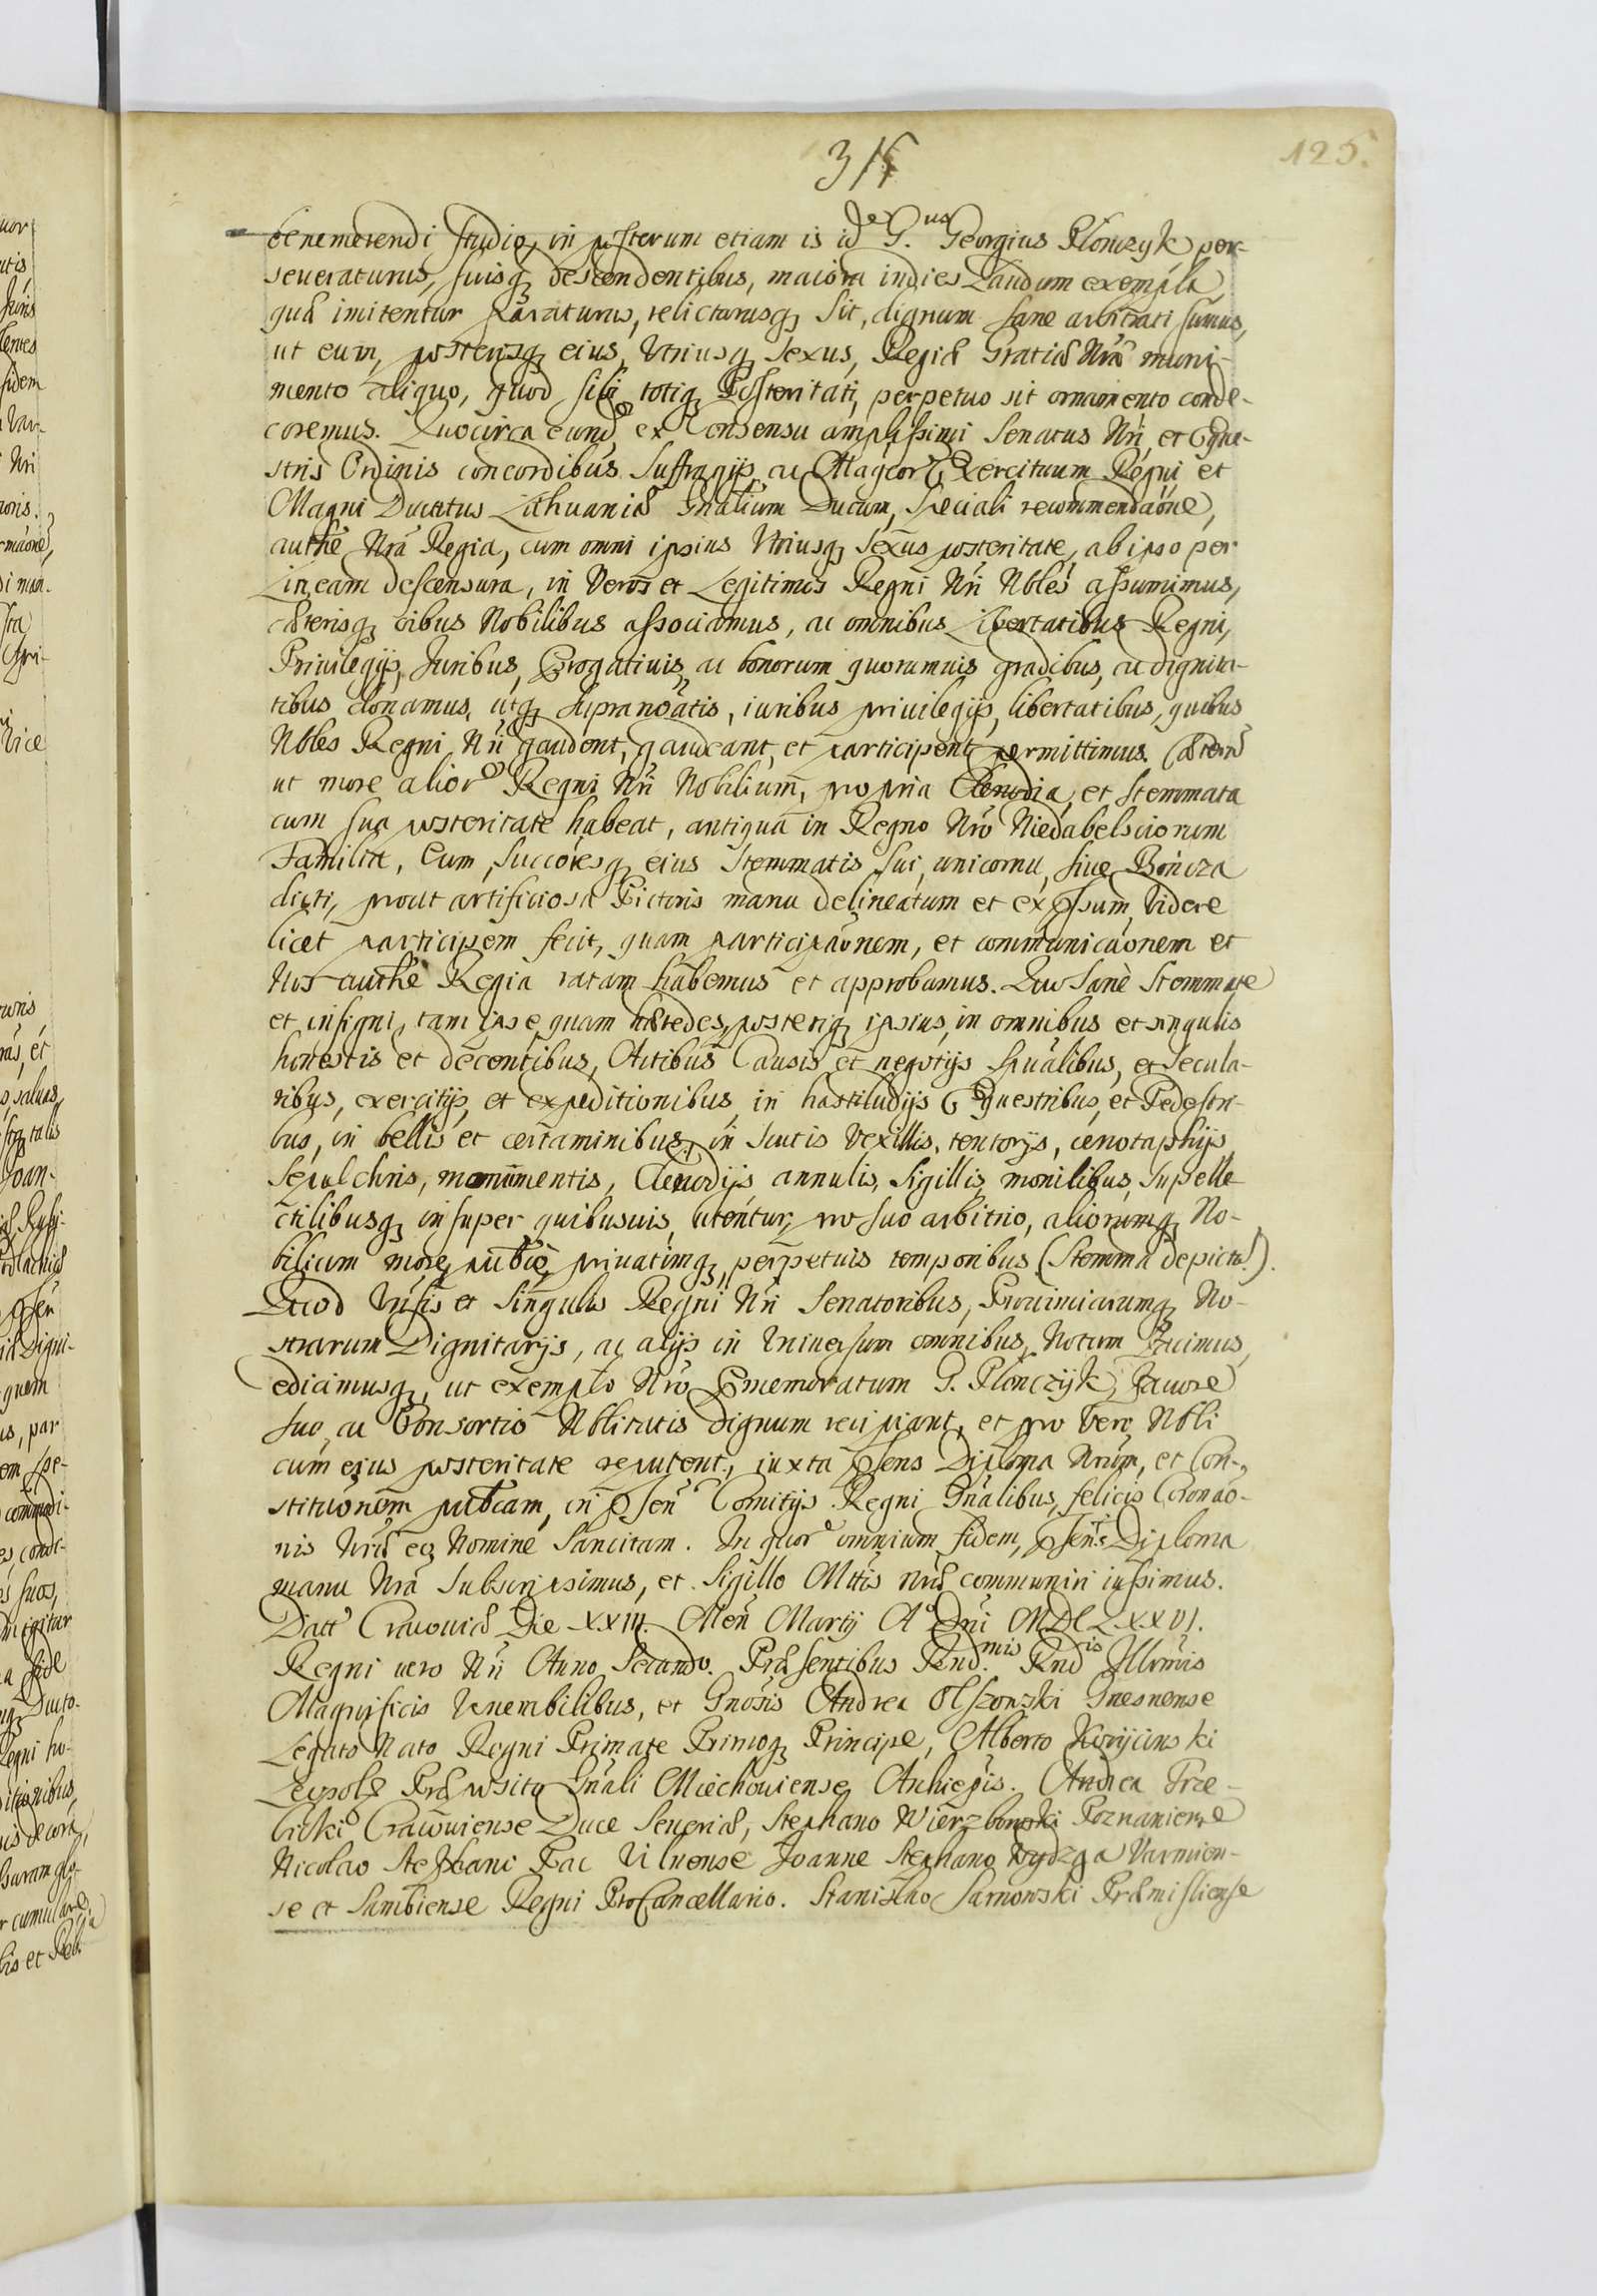 315
125.
benemerendi studio, in posterum etiam is idem G. Georgius Płonczyk, per-
seueraturus, suisq descendentibus, maiora indies Laudum exempla,
quæ imitentur paraturus, relicturusq sit, dignum sane arbitrati sumus,
ut eum, posterosq eius, Vtriusq Sexus, Regiæ Gratiæ Nrae muni-
mento aliquo, quod sibi, totiq Posteritati, perpetuo sit ornamento conde-
coremus. Quocirca eund ex Consensu amplissimi Senatus Nri, et Eque-
stris Ordinis concordibus Suffragijs, ac Magcor Exercituum Regni, et
Magni Ducatus Lithuaniæ Gnalium Ducum, speciali recommendaone,
authe Nra Regia, cum omni ipsius Vtriusq Sexus posteritate, ab ipso per
Lineam descensura, in Veros et Legitimos Regni Nri Nbles assumimus,
cæterisq oibus Nobilibus associamus, ac omnibus Libertatibus Regni,
Priuilegijs, Juribus, Prrogatiuis, ac bonorum quorumuis gradibus, ac dignita-
tibus donamus, utq supranoatis, iuribus priuilegijs, libertatibus, quibus
Nbles Regni Nri gaudent, gaudeant, et participent permittimus. Cæterum
ut more alior Regni Nri Nobilium, propria Clenodia, et stemmata
cum sua posteritate habeat, antiqua in Regno Nro Niedabelsciorum
Familia, Eum, Succoresq eius Stemmatis sui, unicornu, siue Bończa
dicti, prout artificiosa Pictoris manu delineatum et expssum, Videre
licet participem fecit, quam participaonem, et communicaonem et
Nos authe Regia ratam habemus et approbamus. Quo Sanè Stemmate
et insigni, tam ipse quam hæredes, posteriq ipsius, in omnibus et singulis
honestis et decentibus, Actibus Causis et negotijs Spualibus, et Secula-
ribus, exercitijs, et expeditionibus, in hastiludijs Equestribus, et Pedestri-
bus, in bellis et certaminibus, in scutis Vexillis, tentorijs, cenotaphijs,
Sepulchris, monumentis, Clenodijs annulis, Sigillis, monilibus, Supelle
ctilibusq insuper quibusuis, utentur, pro suo arbitrio, aliorumq No-
bilium more, publice, priuatimq, perpetuis temporibus (Stemma depictu).
Quod Vnisis et Singulis Regni Nri Senatoribus, Prouinciarumq No-
strarum Dignitarijs, ac alijs in Vniuersum omnibus, Notum Facimus,
edicimusq, ut exemplo Nro Prmemoratum G. Płonczyk, Fauore
suo, ac Consortio Nblitatis dignum recipiant, et pro Vero Nbli
cum eius posteritate reputent, iuxta psens Diploma Nrum, et Con-
stituonem publcam, in psen Comitijs Regni Gnalibus, felicis Coronao-
nis Nræ eo Nomine Sancitam. In quor omnium fidem, psens Diploma
manu Nra Subscripsimus, et Sigillo Mttis Nræ communiri iussimus.
Datt Cracouiæ Die XXIII. Men Martij A Dni MDCLXXVI.
Regni uero Nri Anno Secundo. Præsentibus Rndmis Rndis Illmis
Magnificis Venerabilibus, et Gnosis Andrea Olszowski Gnesnense
Legato Nato Regni Primate Primoq Principe, Alberto Koryciński
Leopol Præposito Gnali Miechouiense Archiepis. Andrea Trze-
bicki Cracouiense Duce Seueriæ, Stephano Wierzbowski Poznaniense
Nicolao Stephani Pac Vilnense Joanne Stephano Wydzga Varmien-
se et Sambiense Regni ProCancellario. Stanislao Sarnowski Præmisliense